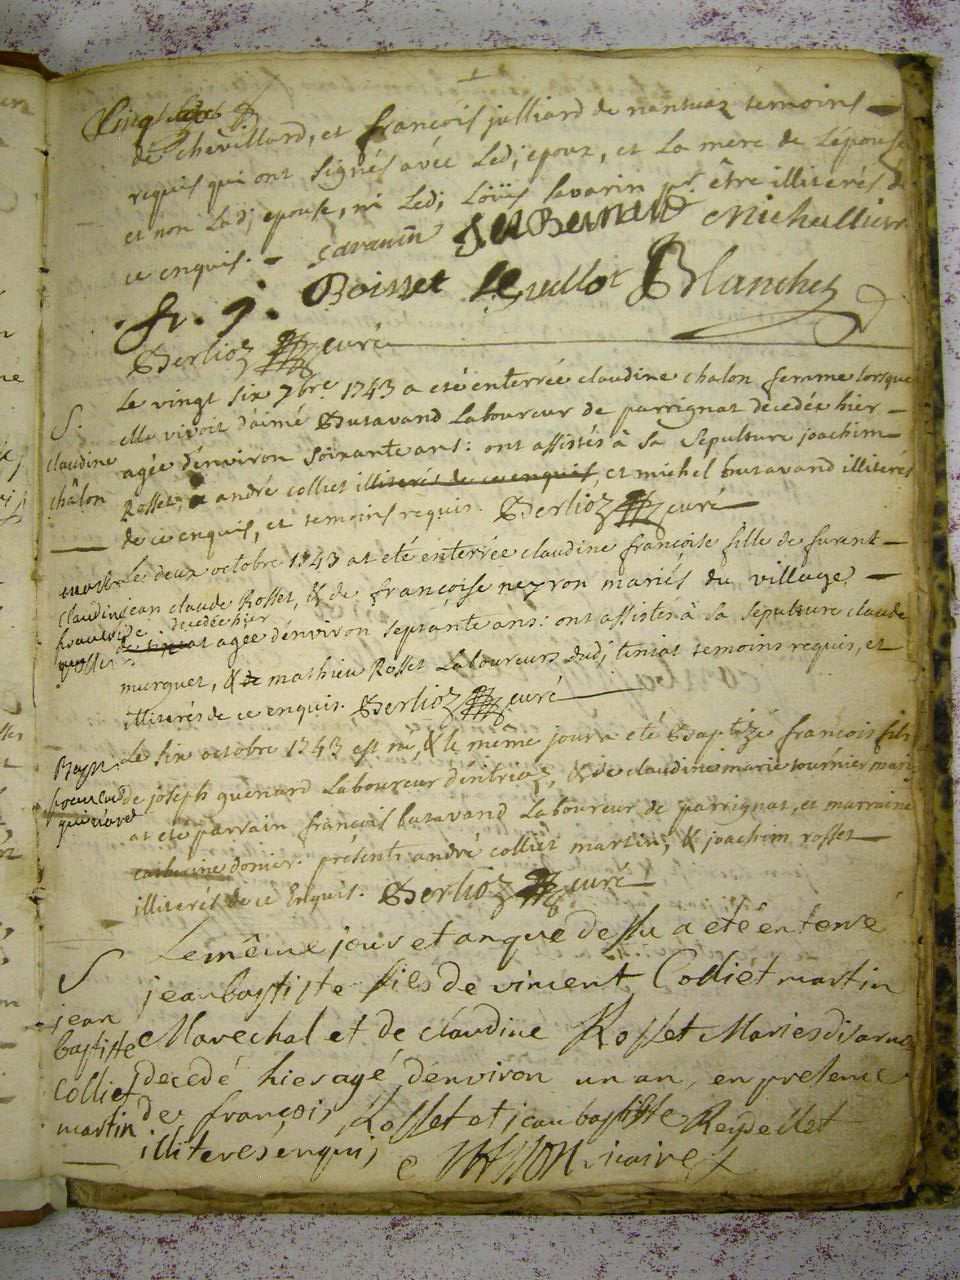 de chevillard, et françois julliard de nantuaz temoins
requis qui ont signés avéc Led; epoux, et La mere de Lépouse
et non Lad; epouse, ni Led; Loüis savarin pr. être illiterés de
ce enquis. - savarin Bernard Michallier
fr. j. Boisset Guillot Blanchet
Berlioz curé
Le vingt six 7bre. 1743 a eté enterrée claudine chalon femme lorsque
S. elle vivoit d'aimé Butavand Laboureur de parrignat décedée hier
claudine agée d'énviron soixante ans: ont assistés à sa sepulture joachim
châlon Rosset, andré colliet illiterés de ce enquis, et michel butavand illiterés
de ce enquis, et temoins requis. Berlioz curé
Le deux octobre 1743 at eté enterrée claudine françoise fille de furent
claudine jean claude Rosset, & de françoise neyron mariés du village
décedée hier
Rosset agée d'énviron septante ans: ont assistés à sa sepulture claude
murguet, & mathieu Rosset Laboureurs dud; temoins requis, et
illiterés de ce enquis. Berlioz curé
Le six octobre 1743 est né, & le même jour a eté Baptizé françois fils
Bapt. de joseph guériard Laboureur & de claudine marie tournier mariés
at eté parrain françois butavand Laboureur de parrignat, et marraine
catherine donier. présents andré colliet martin, & joachim rosset
illiterés de ce Enquis. Berlioz curé
Le même jour et an que dessu a eté enterré
S jean baptiste fils de vincent Colliet martin
jean Marechal et de claudine Rosset Maries
baptiste decedé hier agé d'énviron un an, en presence
Colliet de françois Rosset et jean baptiste Reydellet
martin illiterés enquis vicaire